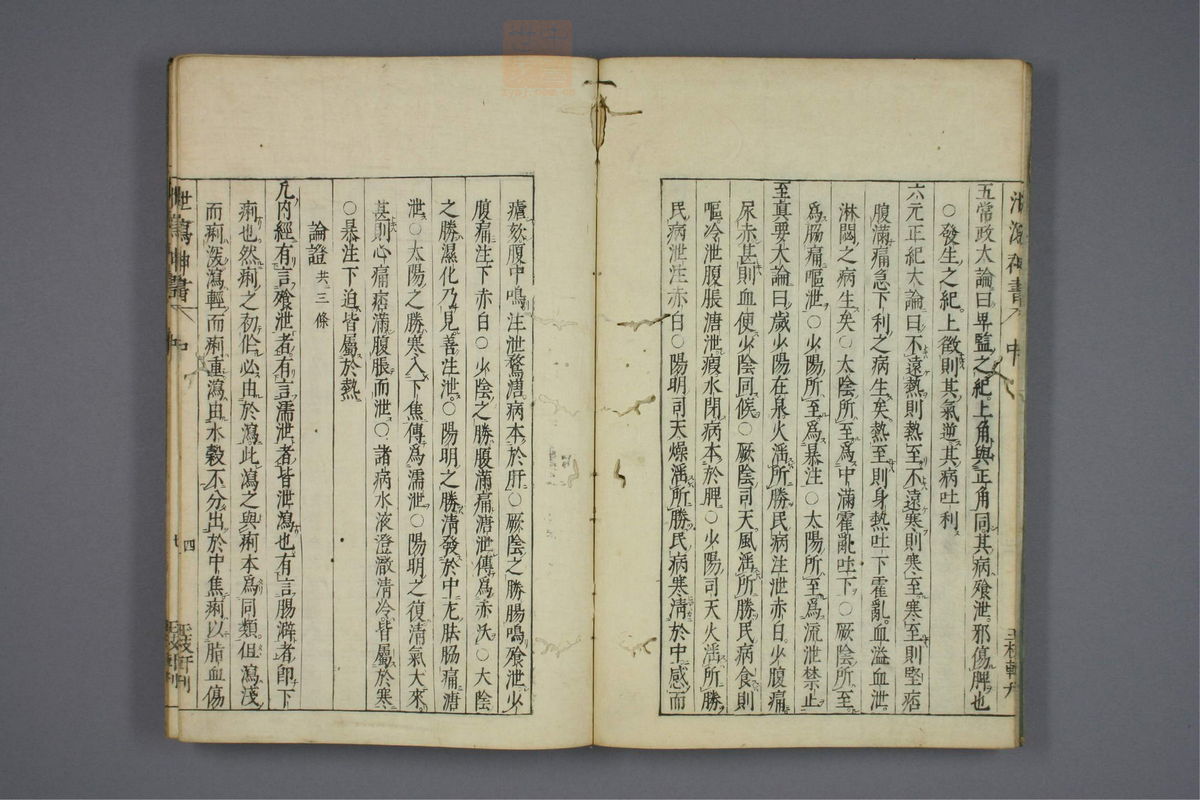 五常政大論曰卑監之紀上角與正角同其病飧泄邪傷脾也
○發生之紀上徵則其氣逆其病吐利
六元正紀大論曰不遠熱則熱至不遠寒則寒至寒至則堅痞
腹滿痛急下利之病生矣熱至則身熱吐下霍亂血溢血泄
淋閟之病生矣○太陰所至爲中滿霍亂吐下○厥陰所至
爲脇痛嘔泄○少陽所至爲暴注○太陽所至爲流泄禁止
至真要大論曰歲少陽在泉火淫所勝民病注泄赤白少腹痛
尿赤甚則血便少陰同候○厥陰司天風淫所勝民病食則
嘔冷泄腹脹溏泄瘕水閉病本於脾○少陽司天火淫所勝
民病泄注赤白○陽明司天燥淫所勝民病寒淸於中感而
瘧欬腹中鳴注泄鶩溏病本於肝○厥陰之勝腸鳴飧泄少
腹痛注下赤白○少陰之勝腹滿痛溏泄傳爲赤沃○太陰
之勝濕化乃見善注泄○陽明之勝清發於中左胠脇痛溏
泄○太陽之勝寒入下焦傳爲濡泄○陽明之復清氣大來
甚則心痛痞滿腹脹而泄○諸病水液澄澈清冷皆屬於寒
○暴注下迫皆屬於熱
論證 共三條
凡内經有言飧泄者有言濡泄者皆泄瀉也有言腸澼者卽下
痢也然痢之初作必由於瀉此瀉之與痢本爲同類但瀉淺
而痢深瀉輕而痢重瀉由水穀不分出於中焦痢以脂血傷